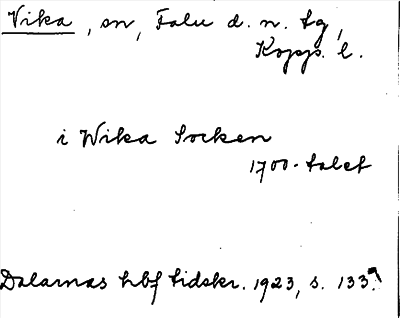 Vika, sn, Falu d. n. tg,
Kopp. l.
i Wika Socken
1700-talet
Dalarnas hbf tidskr. 1923, s. 133.